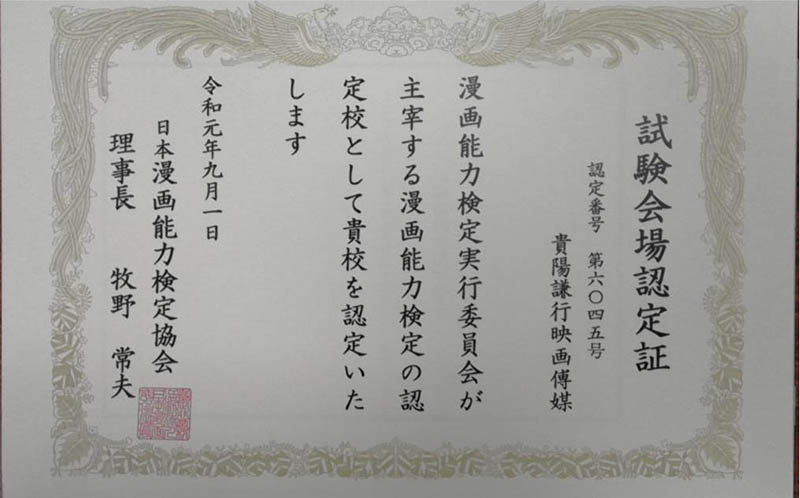 試験会場認定証
認定番号　第六〇四五号
貴陽謙行映画傳媒
漫画能力検定実行委員会が
主宰する漫画能力検定の認
定校として貴校を認定いた
します
令和元年九月一日
日本漫画能力検定協会
理事長　牧野　常夫